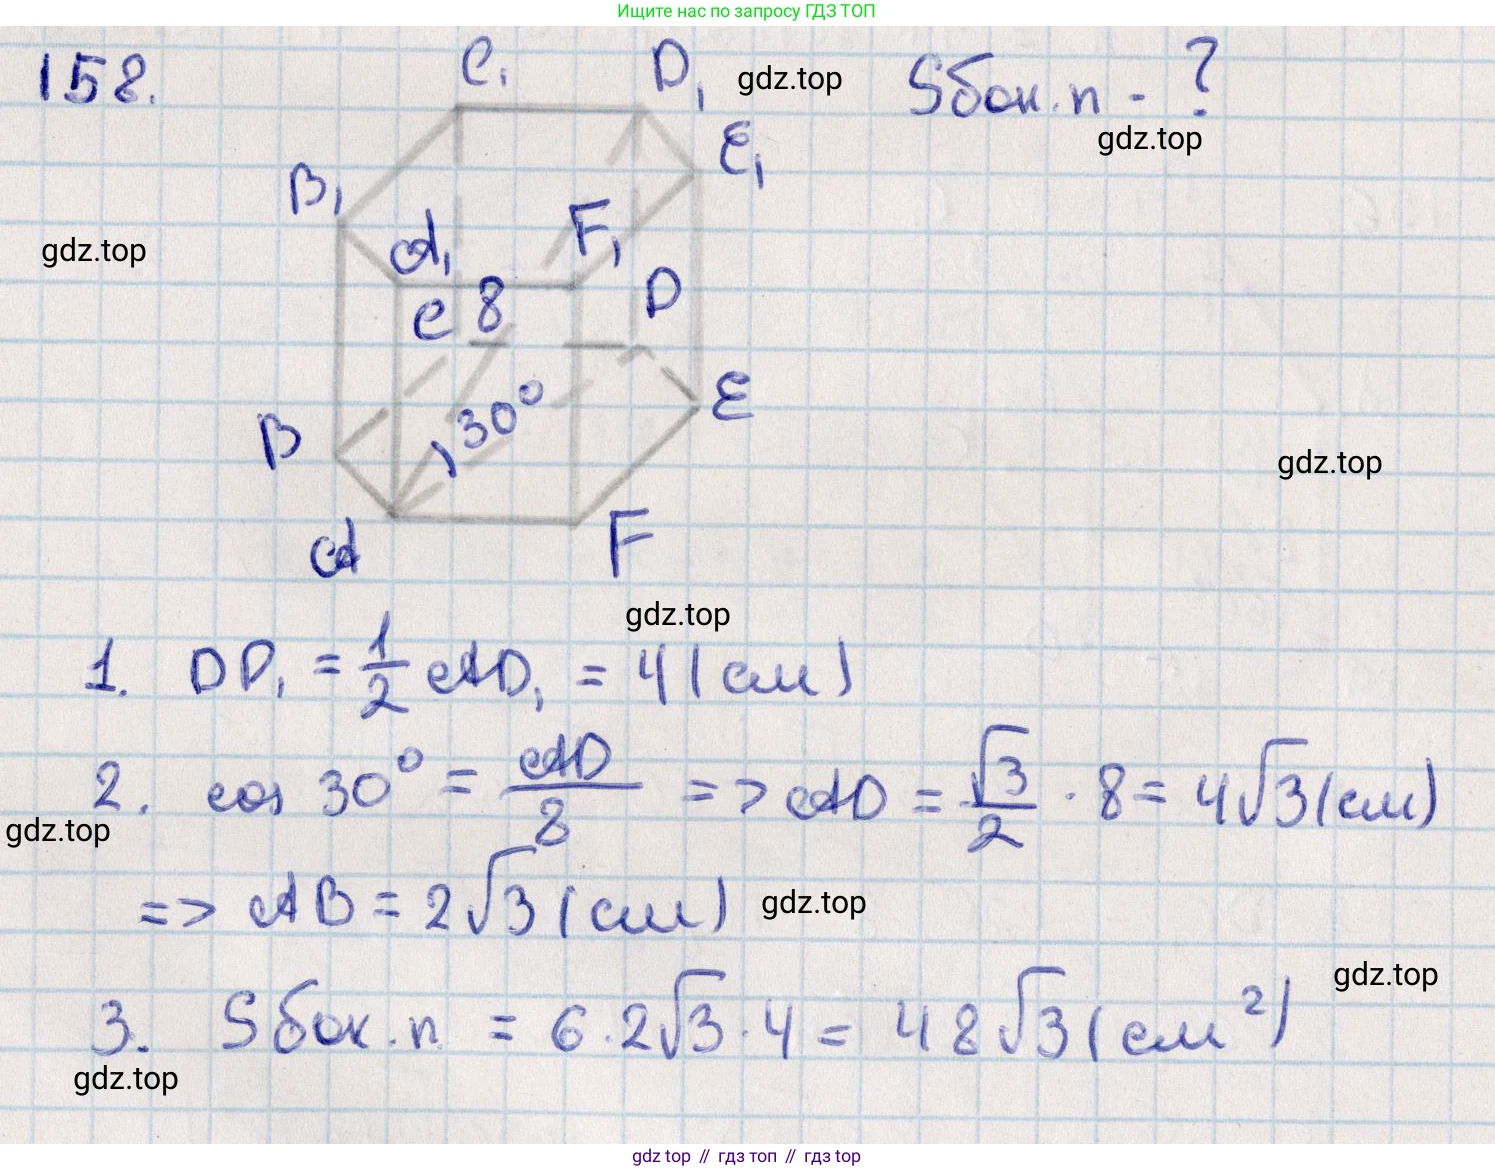 Ищите нас по запросу ГДЗ ТОП
158.
C₁ D₁ gdz.top Sбок.п - ?
E₁ gdz.top
B₁
A₁ F₁
gdz.top
C 8 D
30° E
B
gdz.top
A F
gdz.top
1. DD₁ = 1/2 AD₁ = 4 (см)
2. cos 30° = AD/8 => AD = √3/2 · 8 = 4√3 (см)
gdz.top
=> AB = 2√3 (см) gdz.top
gdz.top
3. Sбок.п. = 6·2√3·4 = 48√3 (см²)
gdz.top
gdz top // гдз топ // гдз top